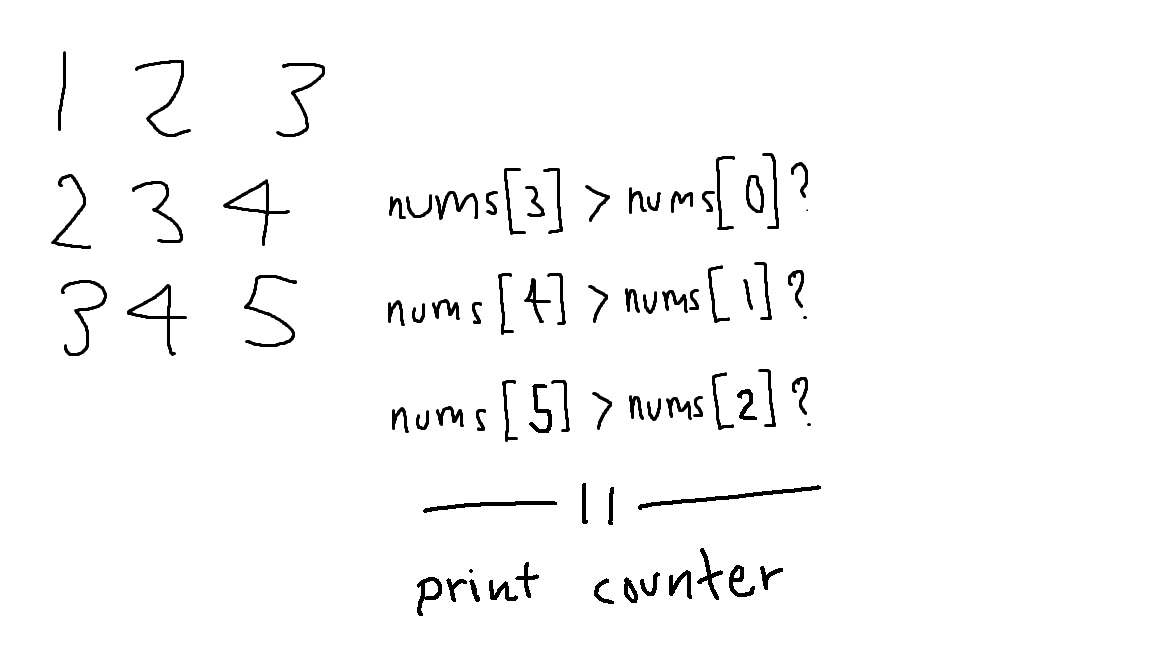 1 2 3
2 3 4
3 4 5
nums[3] > nums[0]?
nums[4] > nums[1]?
nums[5] > nums[2]?
—— 11 ——
print counter